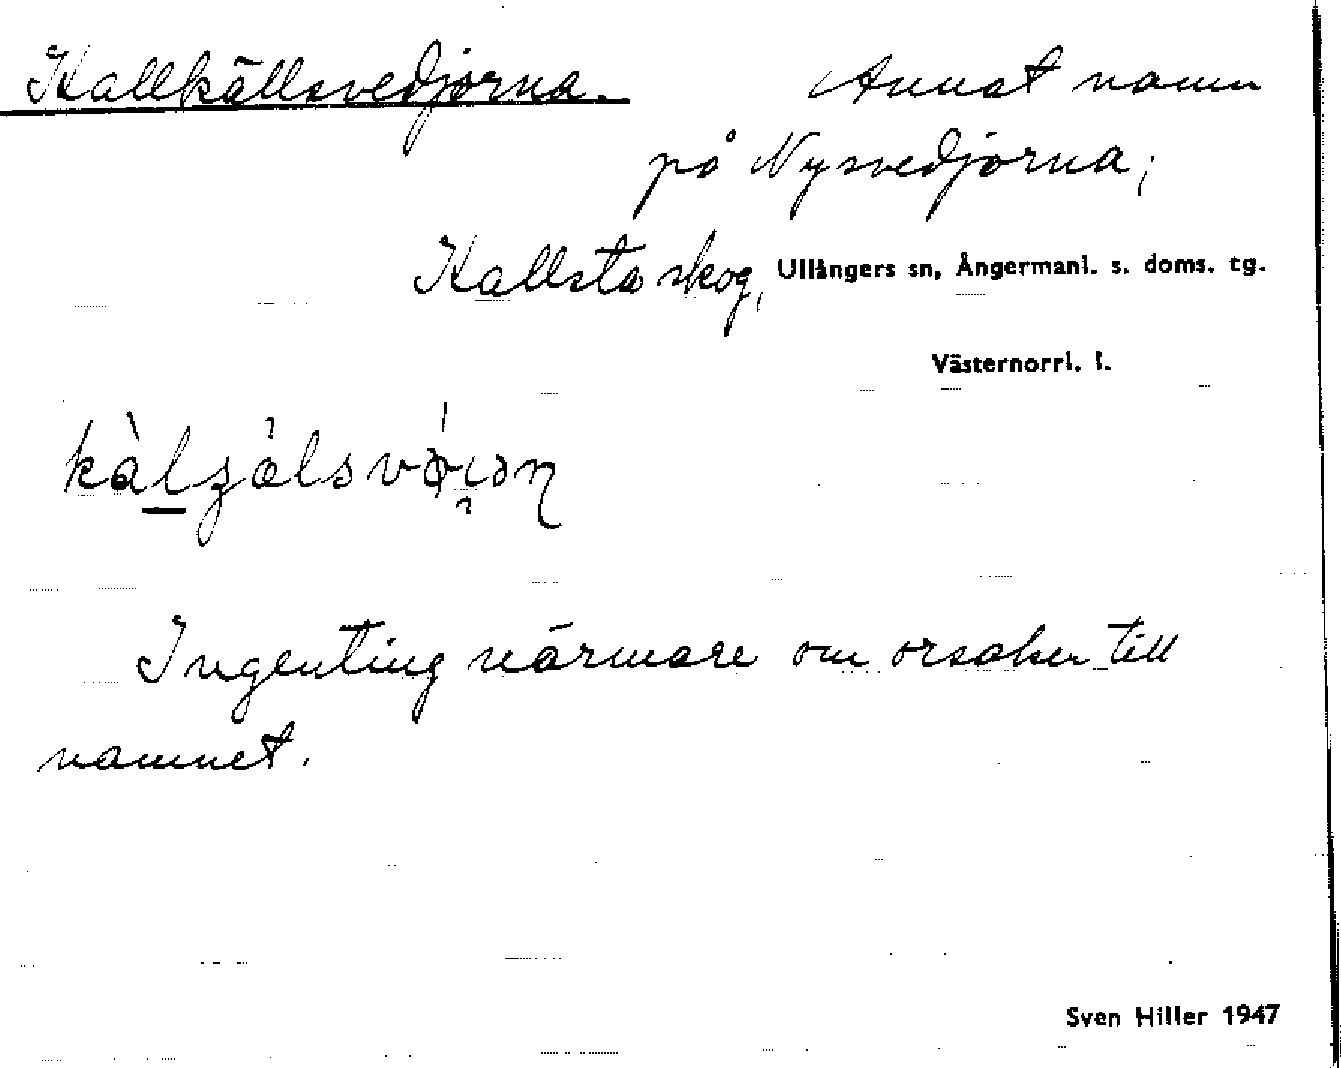 Kallkällsvedjorna. Annat namn
på Nysvedjorna;
Kallsta skog, Ullångers sn, Ångermanl. s. doms. tg.
Västernorrl. l.
Ingenting närmare om orsaken till
namnet.
Sven Hiller 1947